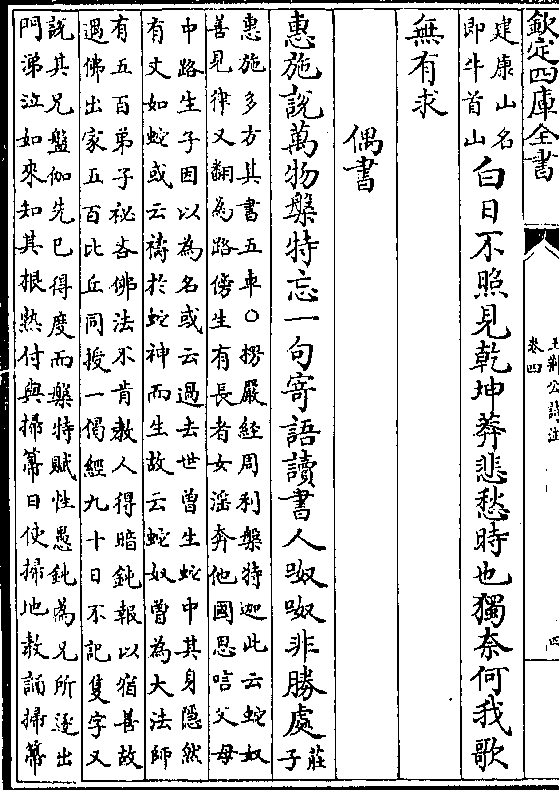 欽定四庫全書
王荊公詩注
卷四
四
建康山名
即牛首山
白日不照見乾坤莽悲愁時也獨奈何我歌
無有求
偶書
惠施說萬物槃特忘一句寄語讀書人呶呶非勝處
莊
子
惠施多方其書五車○楞嚴經周利槃特迦此云蛇奴
善見律又翻為路傍生有長者女淫奔他國思唁父母
中路生子因以為名或云過去世曾生蛇中其身隱然
有文如蛇或云禱於蛇神而生故云蛇奴曾為大法師
有五百弟子祕吝佛法不肯教人得暗鈍報以宿善故
遇佛出家五百比丘同授一偈經九十日不記隻字又
說其兄盤伽先已得度而槃特賦性愚鈍為兄所逐出
門涕泣如來知其根熟付與掃箒日使掃地教誦掃箒